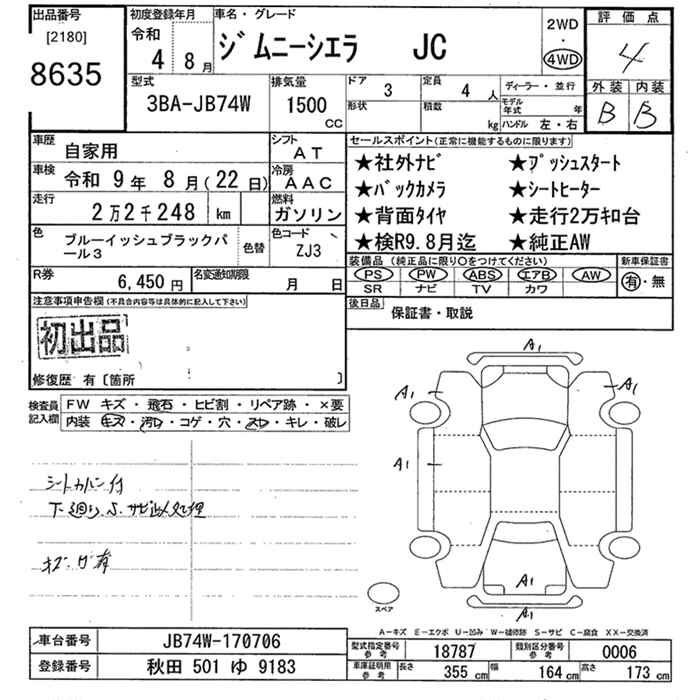 出品番号
[2180]
8635
初度登録年月
令和
4 8月
車名・グレード
ジムニーシエラ JC
2WD
・
4WD
評価点
4
外装 内装
B B
型式
3BA-JB74W
排気量
1500
CC
ドア
3
形状
定員
4 人
積数
kg
ディーラー・並行
モデル年式 年
ハンドル 左・右
車歴
自家用
シフト
AT
車検
令和 9年 8月(22日)
冷房
AAC
走行
2万2千248 km
燃料
ガソリン
色
ブルーイッシュブラックパール3
色替
色コード
ZJ3
R券
6,450円
名変通知期限
月 日
セールスポイント(正常に機能するものに限ります)
★社外ナビ ★プッシュスタート
★バックカメラ ★シートヒーター
★背面タイヤ ★走行2万キロ台
★検R9.8月迄 ★純正AW
装備品 (純正品に限り○をつけてください)
PS PW ABS エアB AW
SR ナビ TV カワ
新車保証書
有・無
後日品
保証書・取説
注意事項申告欄(不具合内容等は具体的に記入して下さい)
初出品
修復歴 有〔箇所 〕
検査員記入欄
FW キズ・飛石・ヒビ割・リペア跡・×要
内装 キズ・汚れ・コゲ・穴・スレ・キレ・破レ
シートカバー付
下廻り S、サビ止メ処理
キズ・凹有
A1
A1
A1
A1
A1
A1
スペア
A-キズ E-エクボ U-凹み W-補修跡 S-サビ C-腐食 XX-交換済
車台番号
JB74W-170706
登録番号
秋田 501 ゆ 9183
型式指定番号
参考
18787
類別区分番号
参考
0006
車庫証明用
参考
長さ 355 cm 幅 164 cm 高さ 173 cm